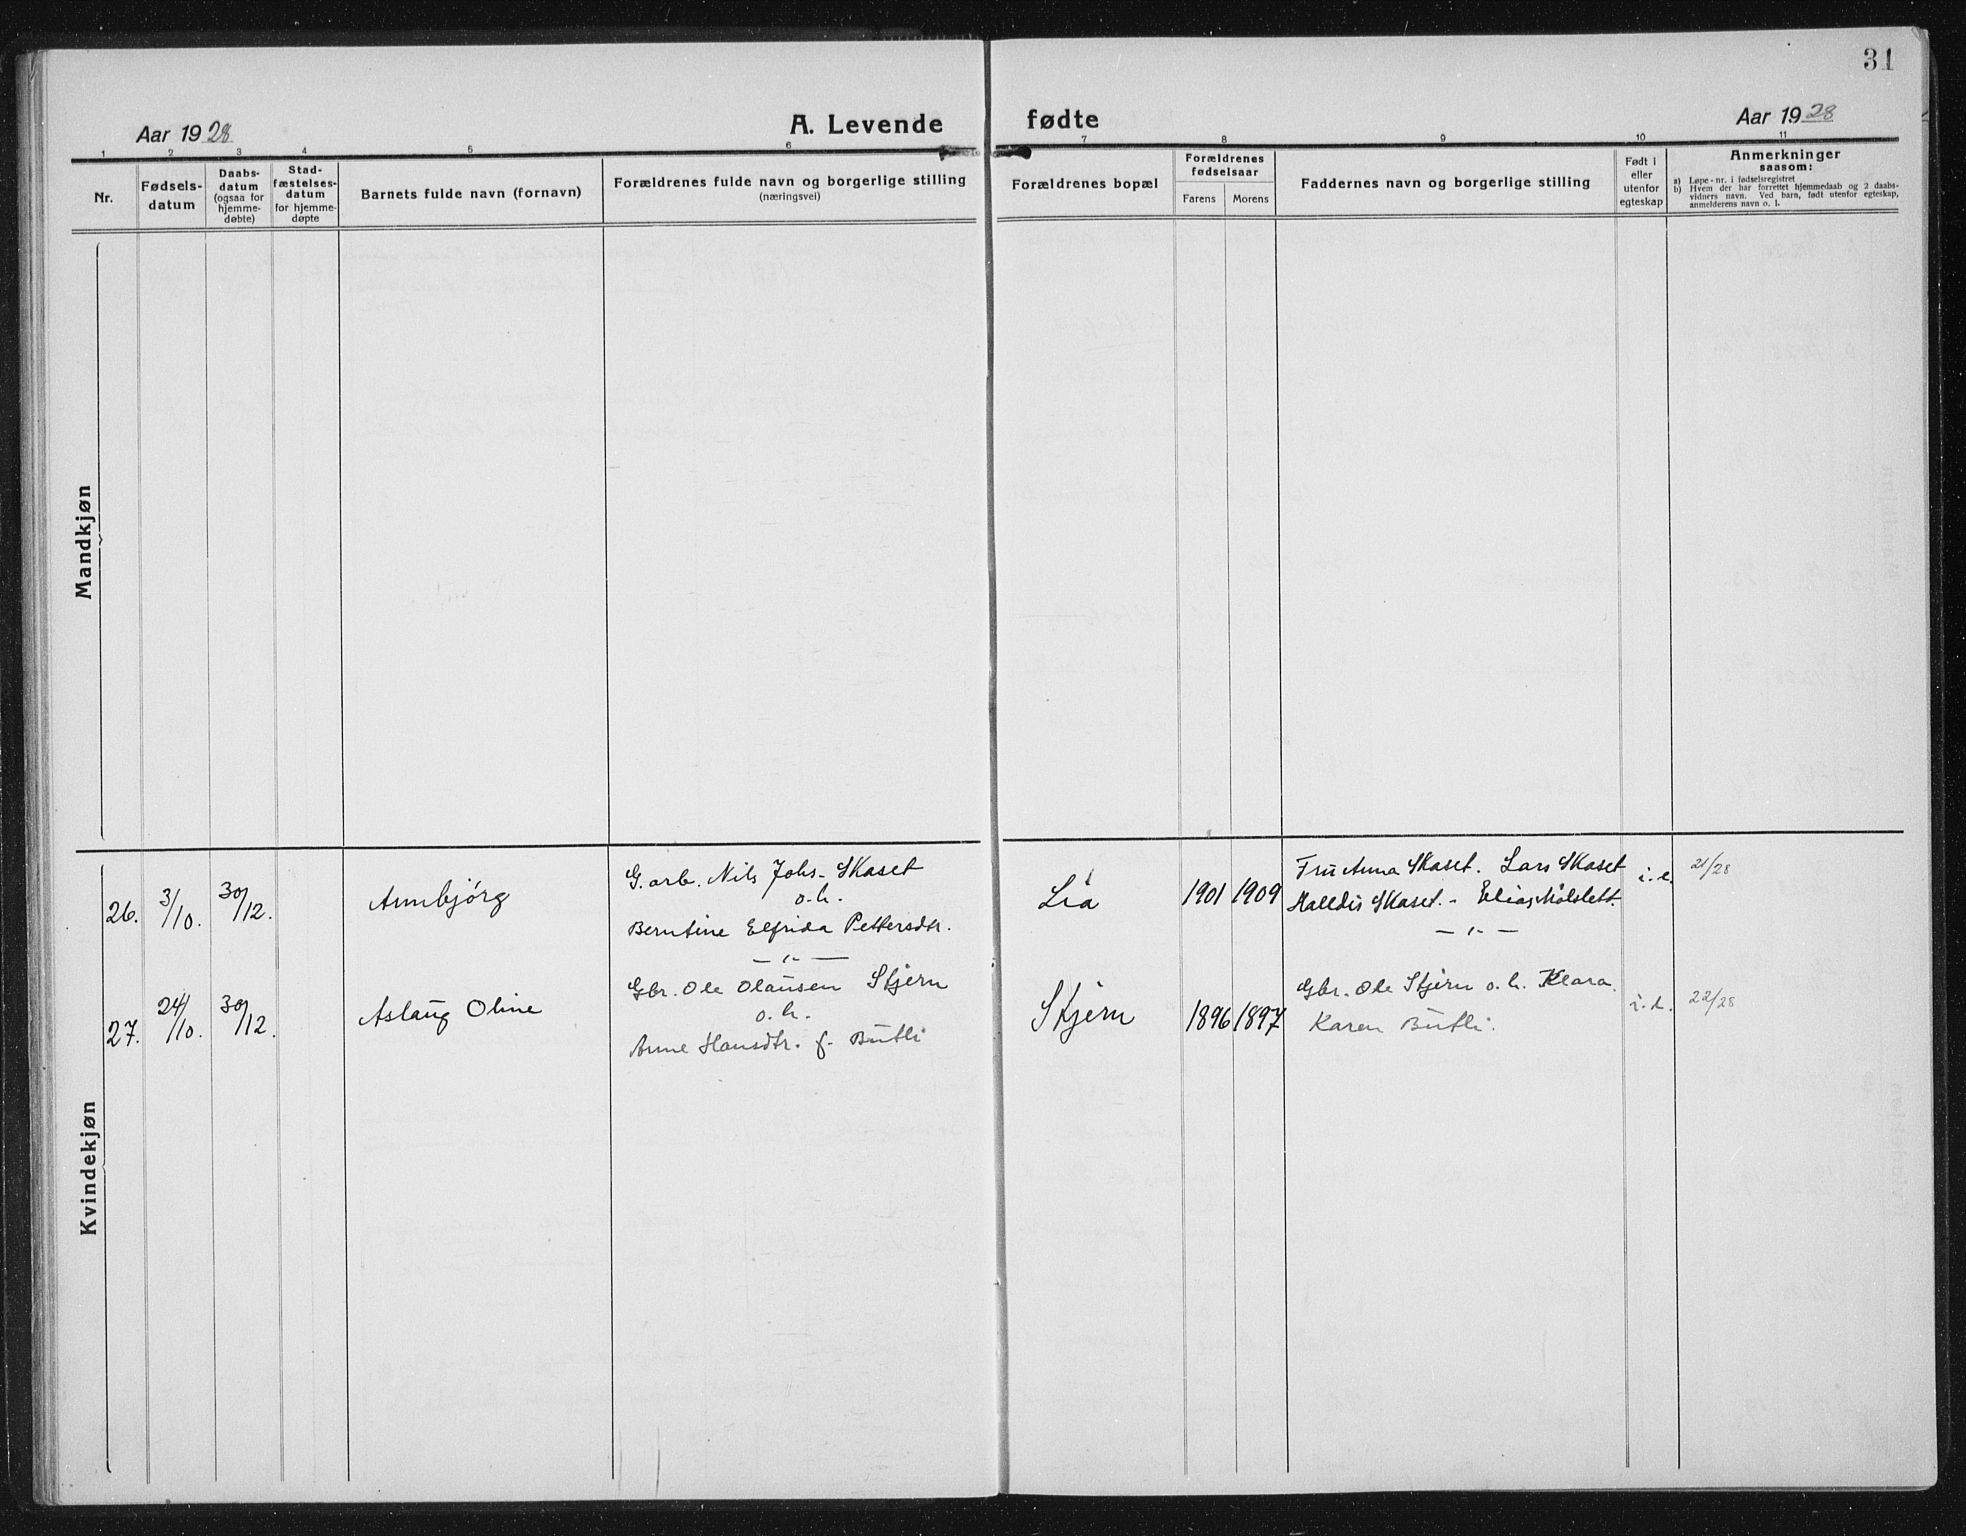 31
Aar 1928
A. Levende
fødte
Aar 1928
1 2 3 4 5 6 7 8 9 10 11
Nr.
Fødsels-
datum
Daabs-
datum
(ogsaa for
hjemme-
døbte)
Stad-
fæstelses-
datum
for hjemme-
døpte
Barnets fulde navn (fornavn)
Forældrenes fulde navn og borgerlige stilling
(næringsvei)
Forældrenes bopæl
Forældrenes
fødselsaar
Farens
Morens
Faddernes navn og borgerlige stilling
Født i
eller
utenfor
egteskap
Anmerkninger
saasom:
a) Løpe-nr. i fødselsregistret
b) Hvem der har forrettet hjemmedaab og 2 daabs-
vidners navn. Ved barn, født utenfor egteskap,
anmelderens navn o. l.
Mandkjøn
Kvindekjøn
26.
3/10.
30/12.
Annbjørg
G. arb. Nils Johs. Skaset
o. h.
Berntine Elfrida Pettersdtr.
— „ —
Lia
1901
1909
Fru Anna Skaset. Lars Skaset
Halldis Skaset. - Elias Molslett.
— „ —
i. e.
21/28
27.
24/10.
30/12.
Aslaug Oline
Gbr. Ole Olausen Stjern
o. h.
Anne Hansdtr. f. Butli
Stjern
1896
1897
Gbr. Ole Stjern o. h. Klara.
Karen Butli.
i. e.
22/28